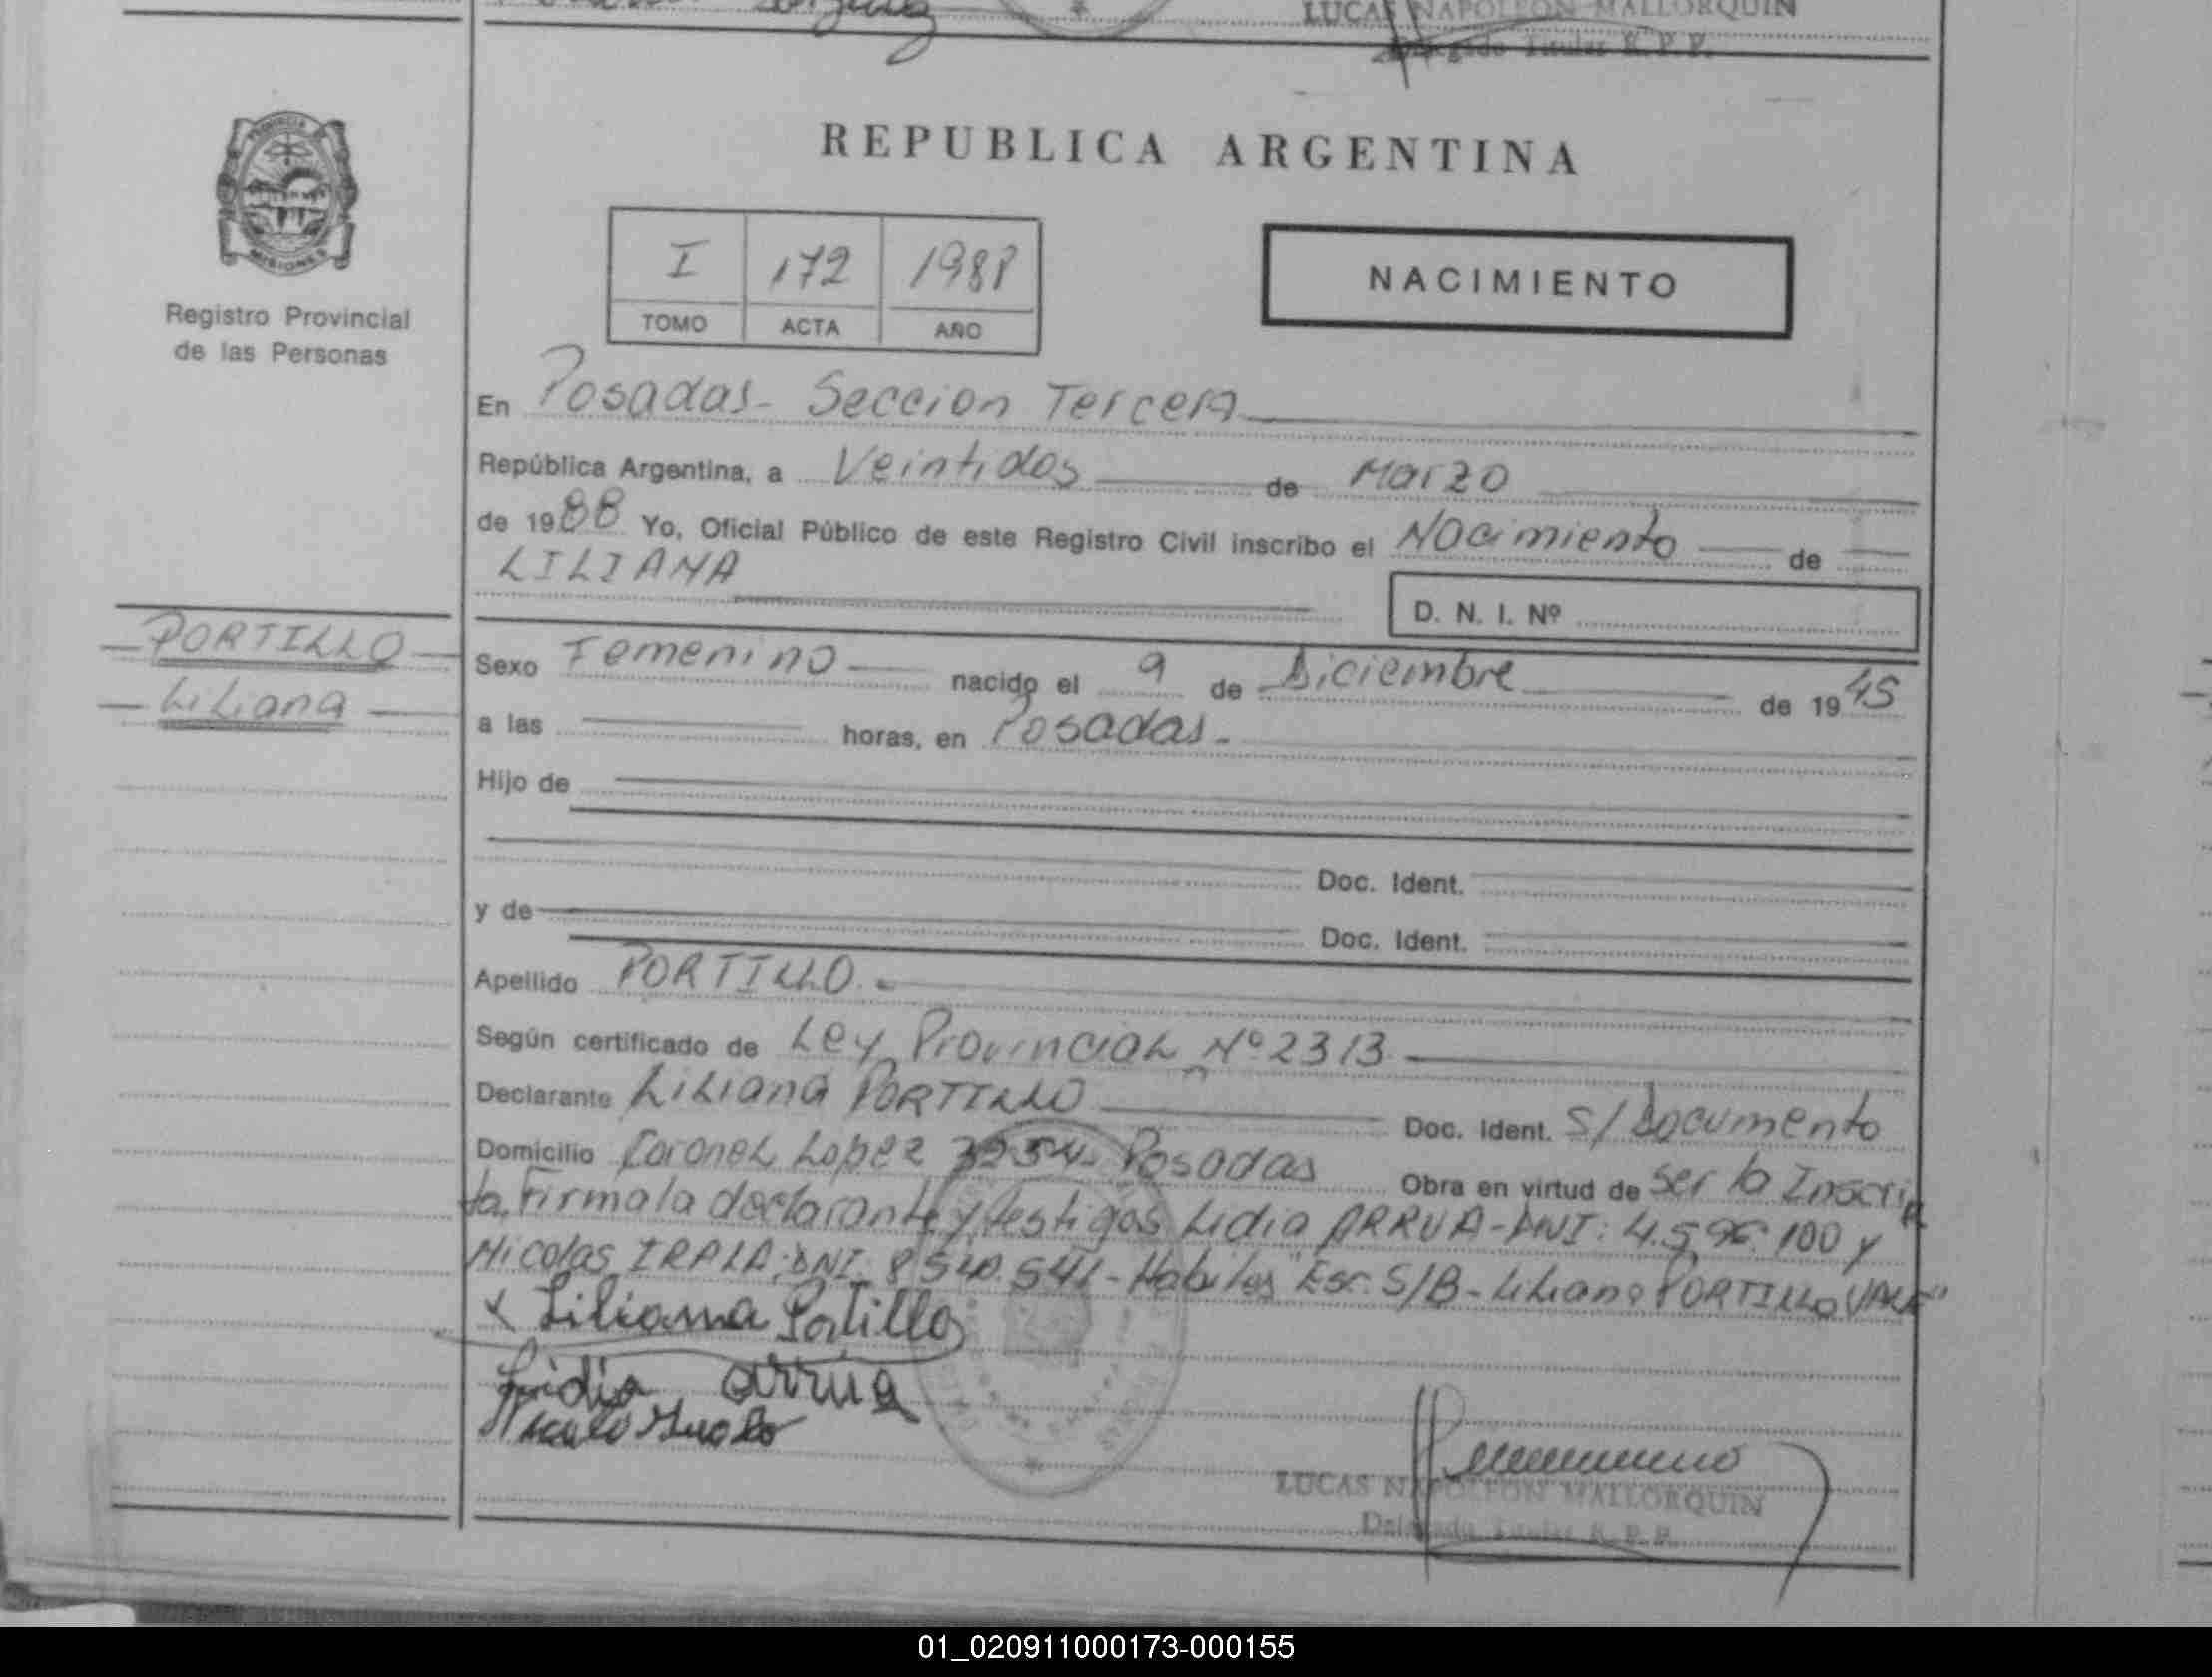 LUCAS NAPOLEON MALLORQUIN
Delegado Titular R. P. P.
PROVINCIA
MISIONES
Registro Provincial
de las Personas
REPUBLICA ARGENTINA
I 172 1988
TOMO ACTA AÑO
NACIMIENTO
En Posadas - Seccion Tercera
República Argentina, a Veintidos de Marzo
de 1988 Yo, Oficial Público de este Registro Civil inscribo el Nacimiento de
LILIANA
D. N. I. Nº
PORTILLO
Liliana
Sexo Femenino nacido el 9 de Diciembre de 1945
a las horas, en Posadas -
Hijo de
Doc. Ident.
y de
Doc. Ident.
Apellido PORTILLO. -
Según certificado de Ley Provincial Nº 2313
Declarante Liliana PORTILLO Doc. Ident. S/Documento
Domicilio Coronel Lopez Posadas Obra en virtud de ser la Inscrip
ta. Firma la declarante y testigos Lidia ARRUA - DNI: 4.596.100 y
Nicolas IRALA; DNI. 8.540.541 - Habiles "Esc. S/B - Liliana PORTILLO VALE"
x Liliana Portillo
Lidia arrua
LUCAS NAPOLEON MALLORQUIN
Delegado Titular R. P. P.
01_020911000173-000155